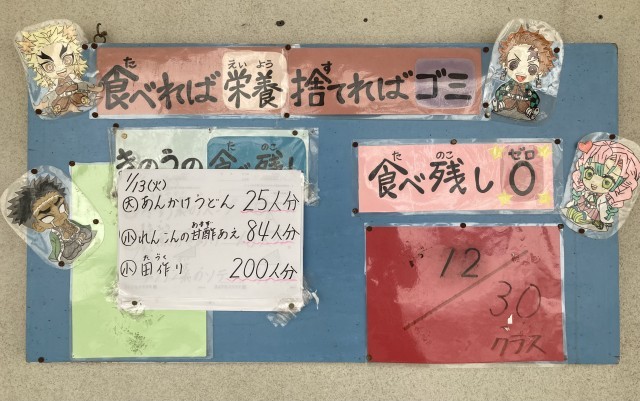 食べれば栄養捨てればゴミ
きのうの食べ残し
1/13(火)
大 あんかけうどん 25人分
小 れんこんの甘酢あえ 84人分
小 田作り 200人分
食べ残し0
12/30
クラス